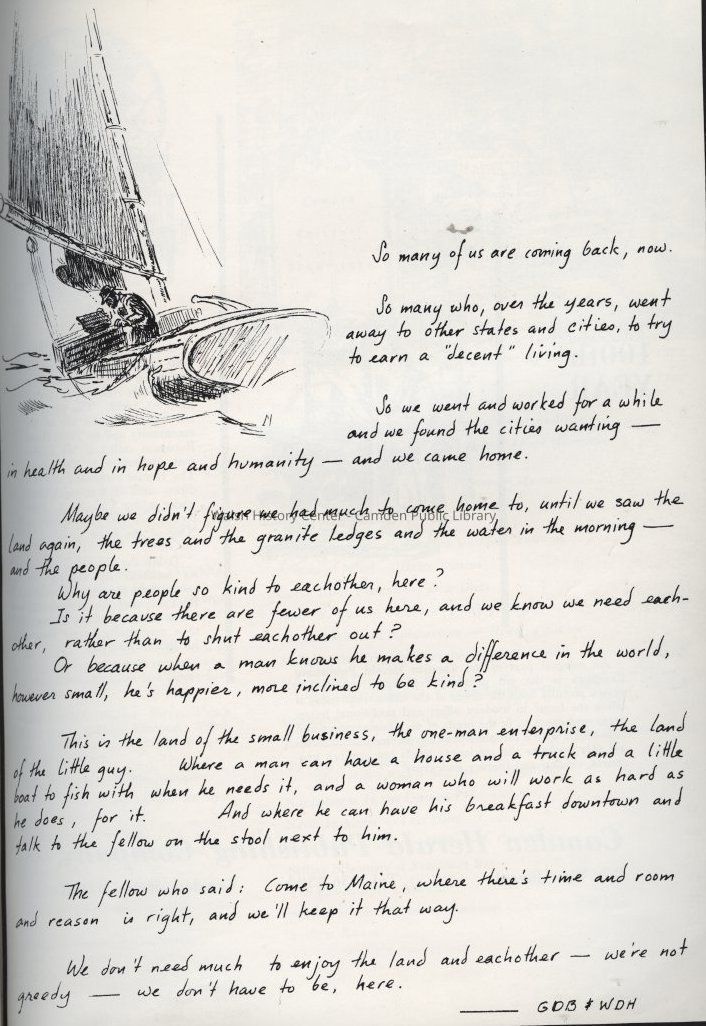 So many of us are coming back, now.
So many who, over the years, went
away to other states and cities, to try
to earn a "decent" living.
So we went and worked for a while
and we found the cities wanting —
in health and in hope and humanity — and we came home.
Maybe we didn't figure we had much to come home to, until we saw the
Walsh History Center - Camden Public Library
land again, the trees and the granite ledges and the water in the morning —
and the people.
Why are people so kind to eachother, here?
Is it because there are fewer of us here, and we know we need each-
other, rather than to shut eachother out?
Or because when a man knows he makes a difference in the world,
however small, he's happier, more inclined to be kind?
This is the land of the small business, the one-man enterprise, the land
of the little guy. Where a man can have a house and a truck and a little
boat to fish with when he needs it, and a woman who will work as hard as
he does, for it. And where he can have his breakfast downtown and
talk to the fellow on the stool next to him.
The fellow who said: Come to Maine, where there's time and room
and reason is right, and we'll keep it that way.
We don't need much to enjoy the land and eachother — we're not
greedy — we don't have to be, here.
— GDB & WDH